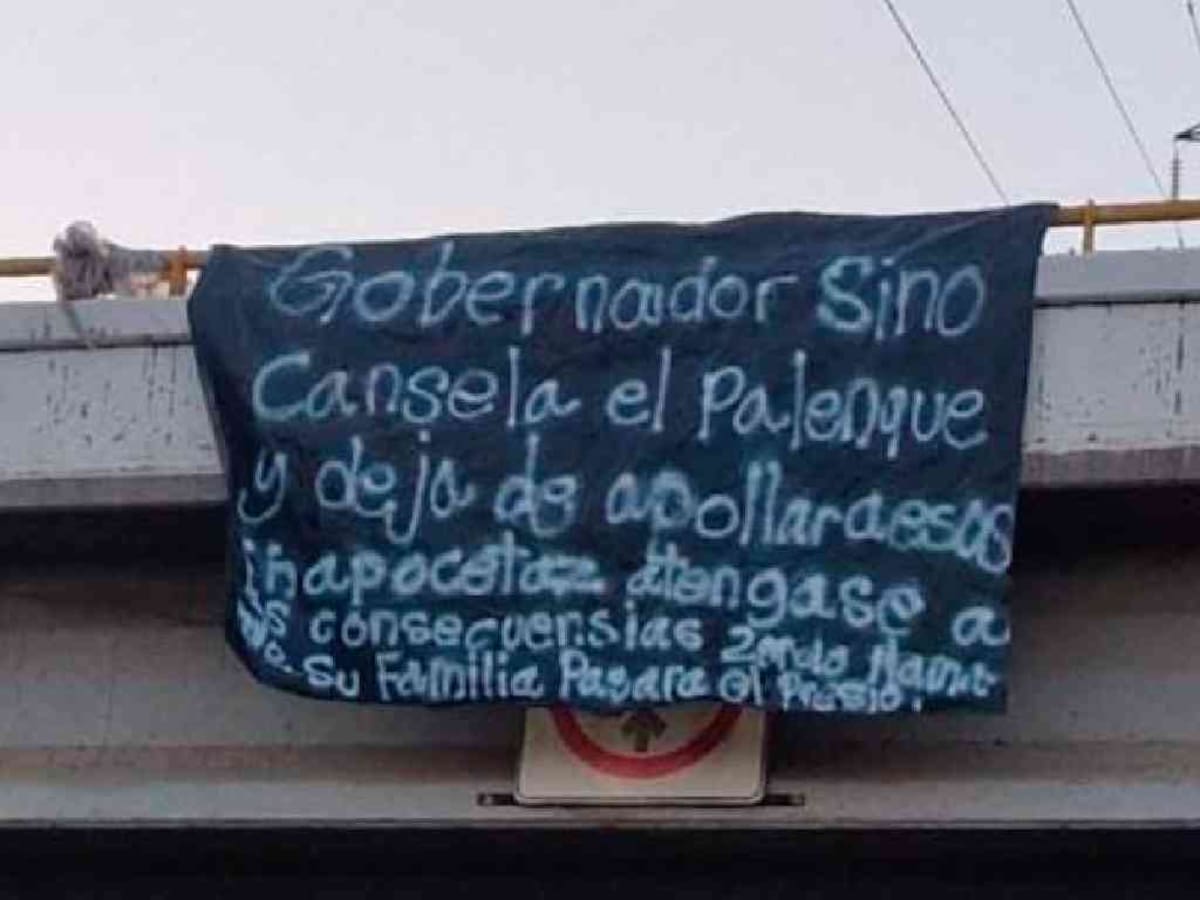 Gobernador Sino
Cansela el Palenque
y deja de apollar a esas
chapocotaz atengase a
las consecuensias 2ando llamado
Su Familia Pagara el Presio.